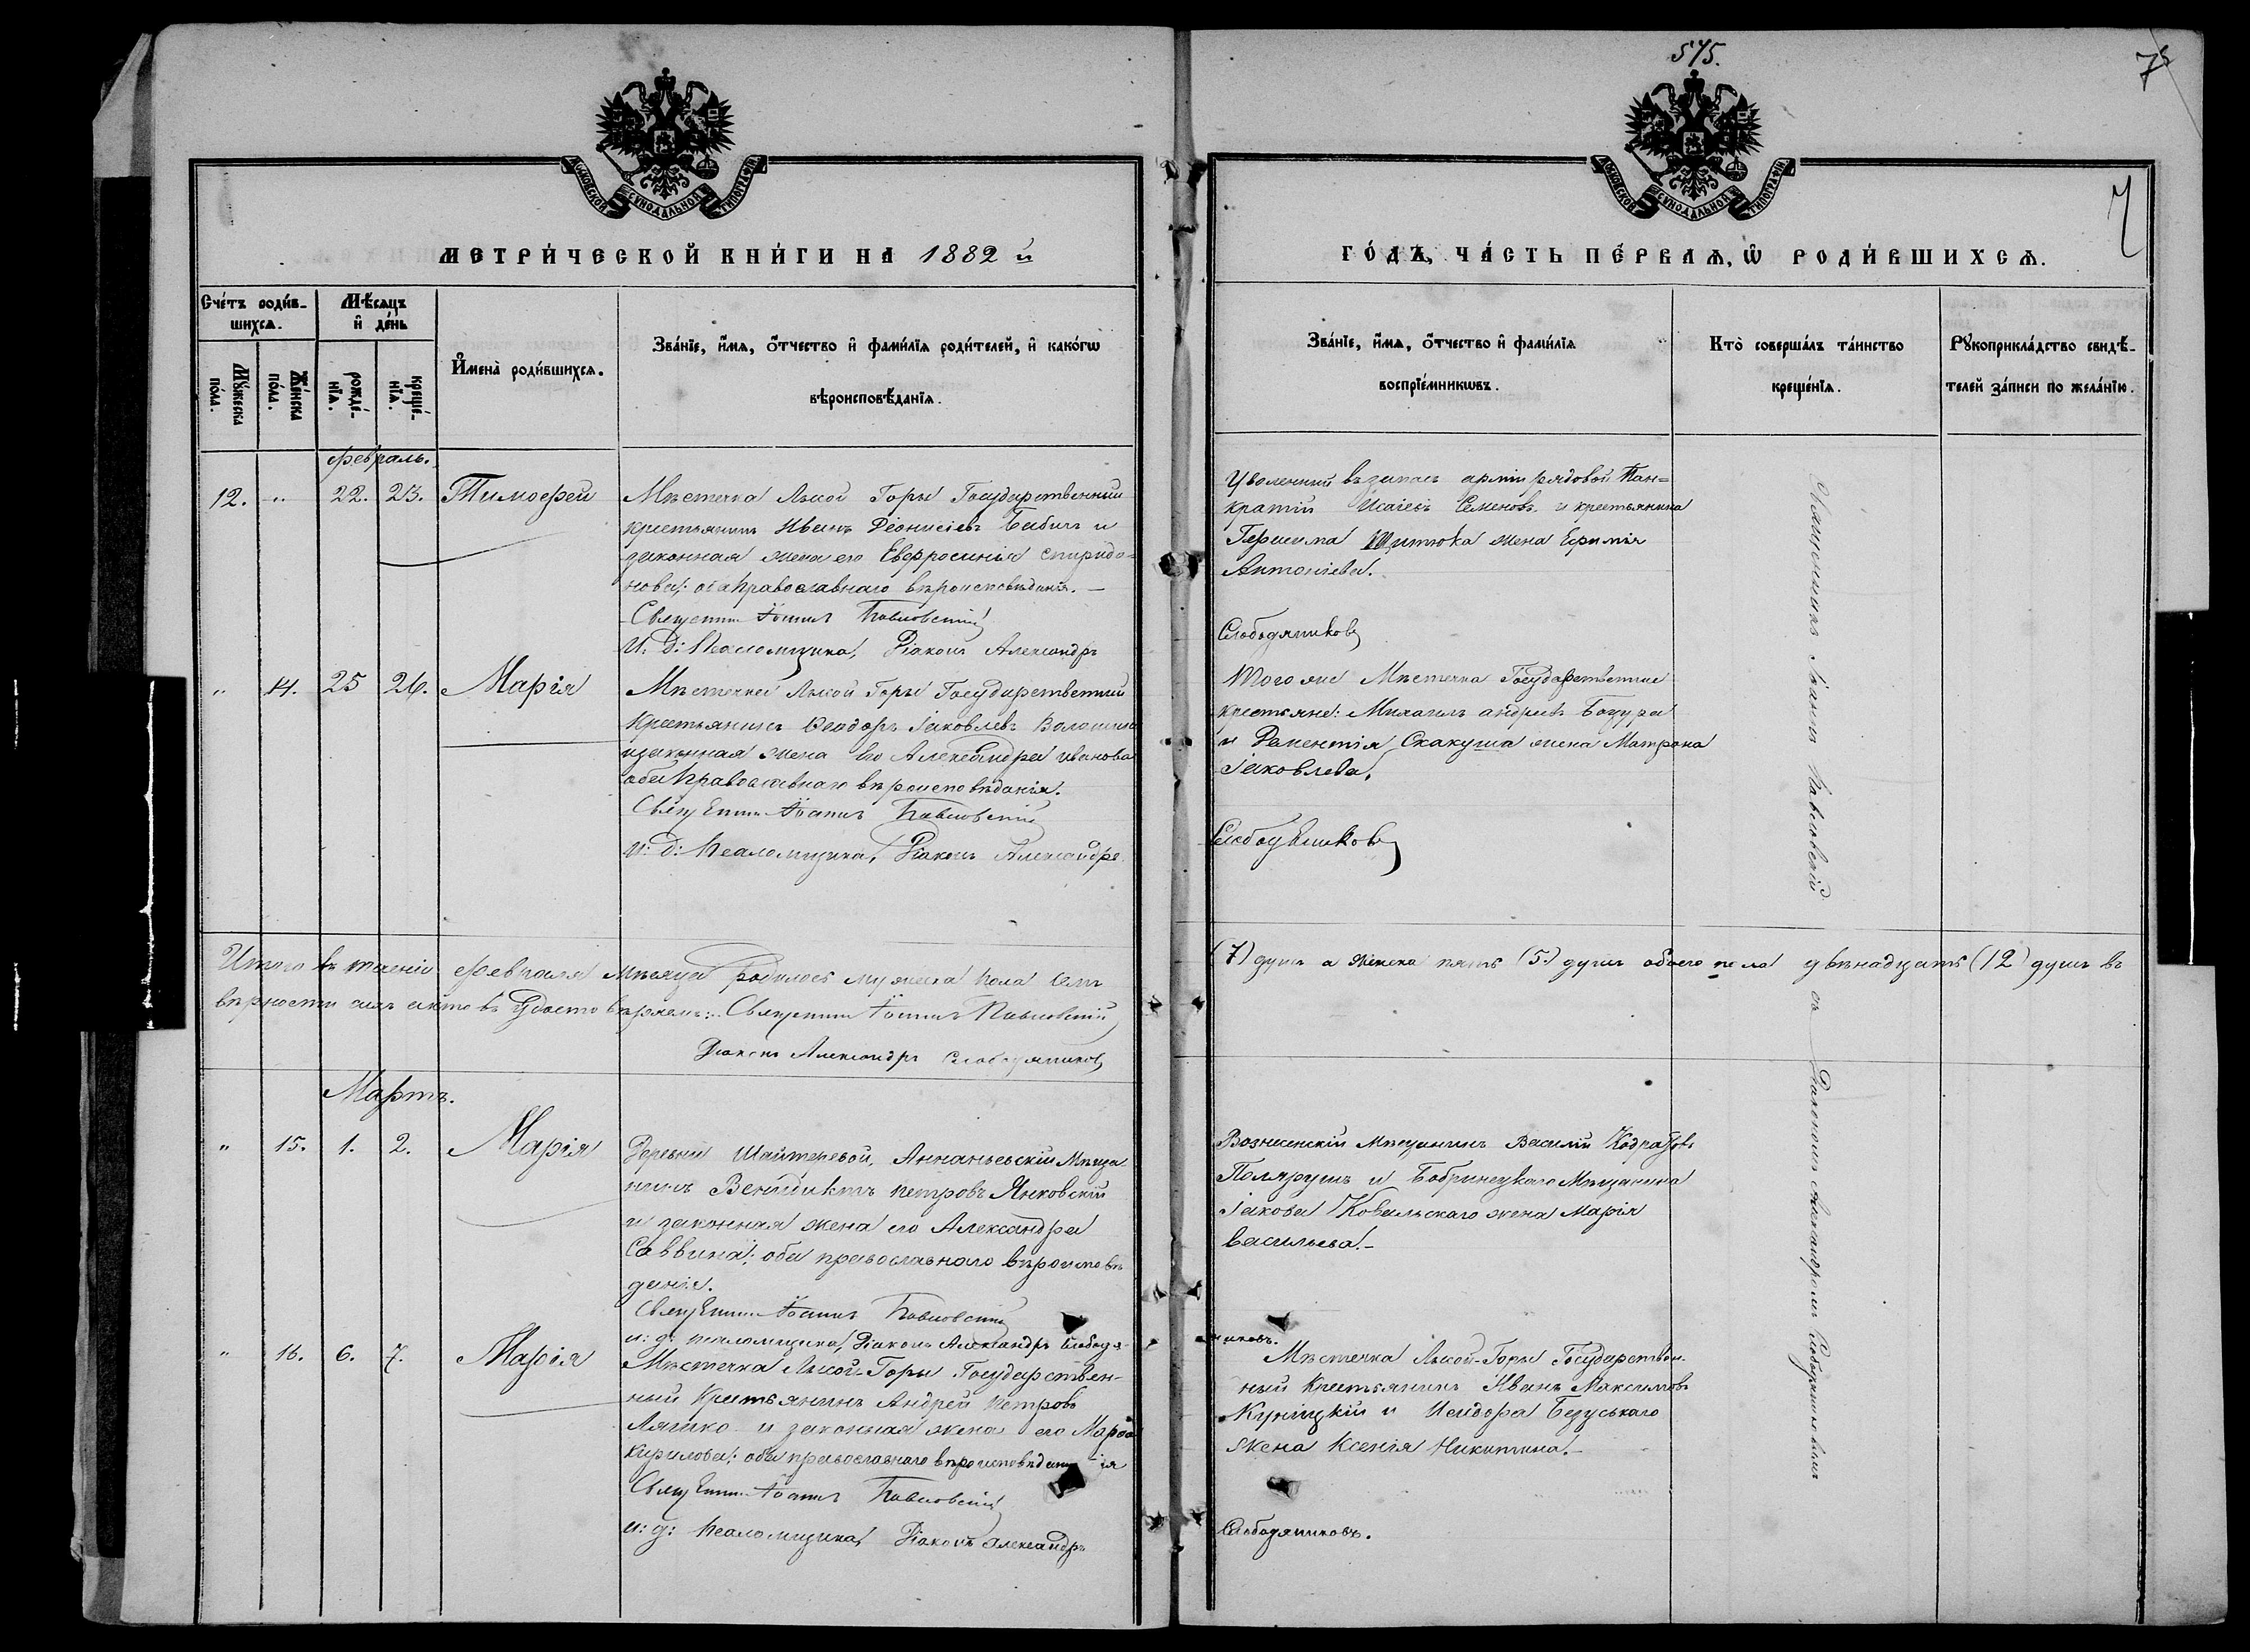 545.
75
7
МОСКОВСКОЙ СѴНОДАЛЬНОЙ ТИПОГРАФІИ
МОСКОВСКОЙ СѴНОДАЛЬНОЙ ТИПОГРАФІИ
МЕТРИ́ЧЕСКОЙ КНИ́ГИ НА 1882 й
ГО́ДЪ, ЧА́СТЬ ПЕ́РВАѦ, Ѡ҆ РОДИ́ВШИХСѦ.
Сче́тъ роди́в-
шихсѧ.
Мѣ́сѧцъ
и҆ де́нь
Мꙋ́жеска
по́ла.
Же́нска
по́ла.
рожде́-
нїѧ.
креще́-
нїѧ.
И҆мена̀ роди́вшихсѧ.
Зва́нїе, и҆́мѧ, ѻ҆́тчество и҆ фами́лїѧ роди́телей, и҆ како́гѡ
вѣроисповѣ́данїѧ.
Зва́нїе, и҆́мѧ, ѻ҆́тчество и҆ фами́лїѧ
воспрїе́мникѡвъ.
Кто̀ соверша́лъ та́инство
креще́нїѧ.
Рꙋкоприкла́дство свидѣ́-
телей за́писи по жела́нїю.
Февраль.
12. " 22. 23. Тимофей
Мѣстечка Лысой Горы Государственный
крестьянинъ Иванъ Діонисіевъ Бабичъ и
законная жена его Евфросинія Спиридо-
нова; оба православнаго вѣроисповѣданія. —
Священникъ Іоаннъ Павловскій
И. Д: Псаломщика, Діаконъ Александръ
Уволенный въ запасъ арміи рядовой Пан=
кратій Исаіевъ Семеновъ и крестьянина
Герасима Шитюка жена Ефимія
Антоніева.
Слободяниковъ
" 14. 25 26. Марія
Мѣстечка Лысой Горы Государственный
Крестьянинъ Ѳеодоръ Іаковлевъ Волошинъ
и законная жена его Александра Иванова
оба православнаго вѣроисповѣданія.
Священникъ Іоаннъ Павловскій
И: Д: Псаломщика, Діаконъ Александръ
Того же Мѣстечка Государственные
крестьяне: Михаилъ Андреевъ Боцура
и Дементія Скакуша жена Матрона
Іаковлева.
Слободяниковъ
Итого въ теченіе февраля Мѣсяца родилось мужеска пола семь
(7) душъ а женска пять (5) душъ обоего пола двѣнадцать (12) душъ въ
вѣрности сихъ актовъ удостовѣряемъ: Священникъ Іоаннъ Павловскій
Діаконъ Александръ Слободяниковъ
Мартъ.
" 15. 1. 2. Марія
Деревни Шайтеревой, Ананьевскій Мѣща-
нинъ Венидиктъ Петровъ Янковскій
и законная жена его Александра
Саввина; оба православнаго вѣроисповѣ
данія.
Священникъ Іоаннъ Павловскій
и: д: псаломщика, Діаконъ Александръ Слободя-
Вознесенскій Мѣщанинъ Василій Кодратовъ
Полярушъ и Бобринецкаго Мѣщанина
Іакова Ковальскаго жена Марія
Васильева. —
никовъ.
" 16. 6. 7. Марія
Мѣстечка Лысой-Горы Государствен-
ный Крестьянинъ Андрей Петровъ
Ляшко и законная жена его Марѳа
Кирилова; оба православнаго вѣроисповѣданія
Священникъ Іоаннъ Павловскій
и: д: Псаломщика, Діаконъ Александръ
Мѣстечка Лысой-Горы Государствен-
ный Крестьянинъ Иванъ Максимовъ
Куницкій и Исидора Безуськаго
жена Ксенія Никитина. —
Слободяниковъ.
Священникъ Іоаннъ Павловскій съ Діакономъ Александромъ Слободяниковымъ